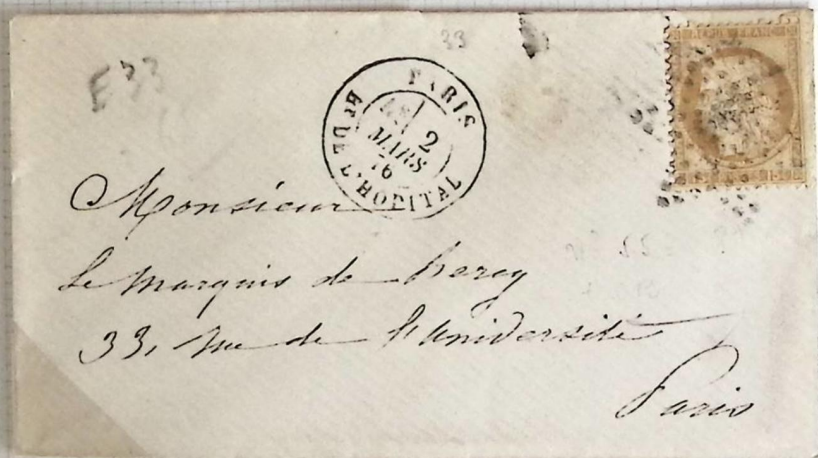 33
E 33
REPUB FRANC
PARIS
2
MARS
76
Bt DE L'HOPITAL
Monsieur
Le Marquis de Bercy
33, Rue de l'Université
Paris